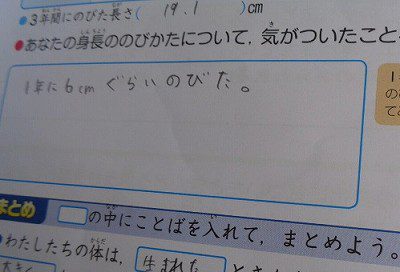 ●3年間にのびた長さ( 19.1 )cm
●あなたの身長ののびかたについて,気がついたこと
1年に6cmぐらいのびた。
まとめ □の中にことばを入れて,まとめよう。
●わたしたちの体は, 生まれた